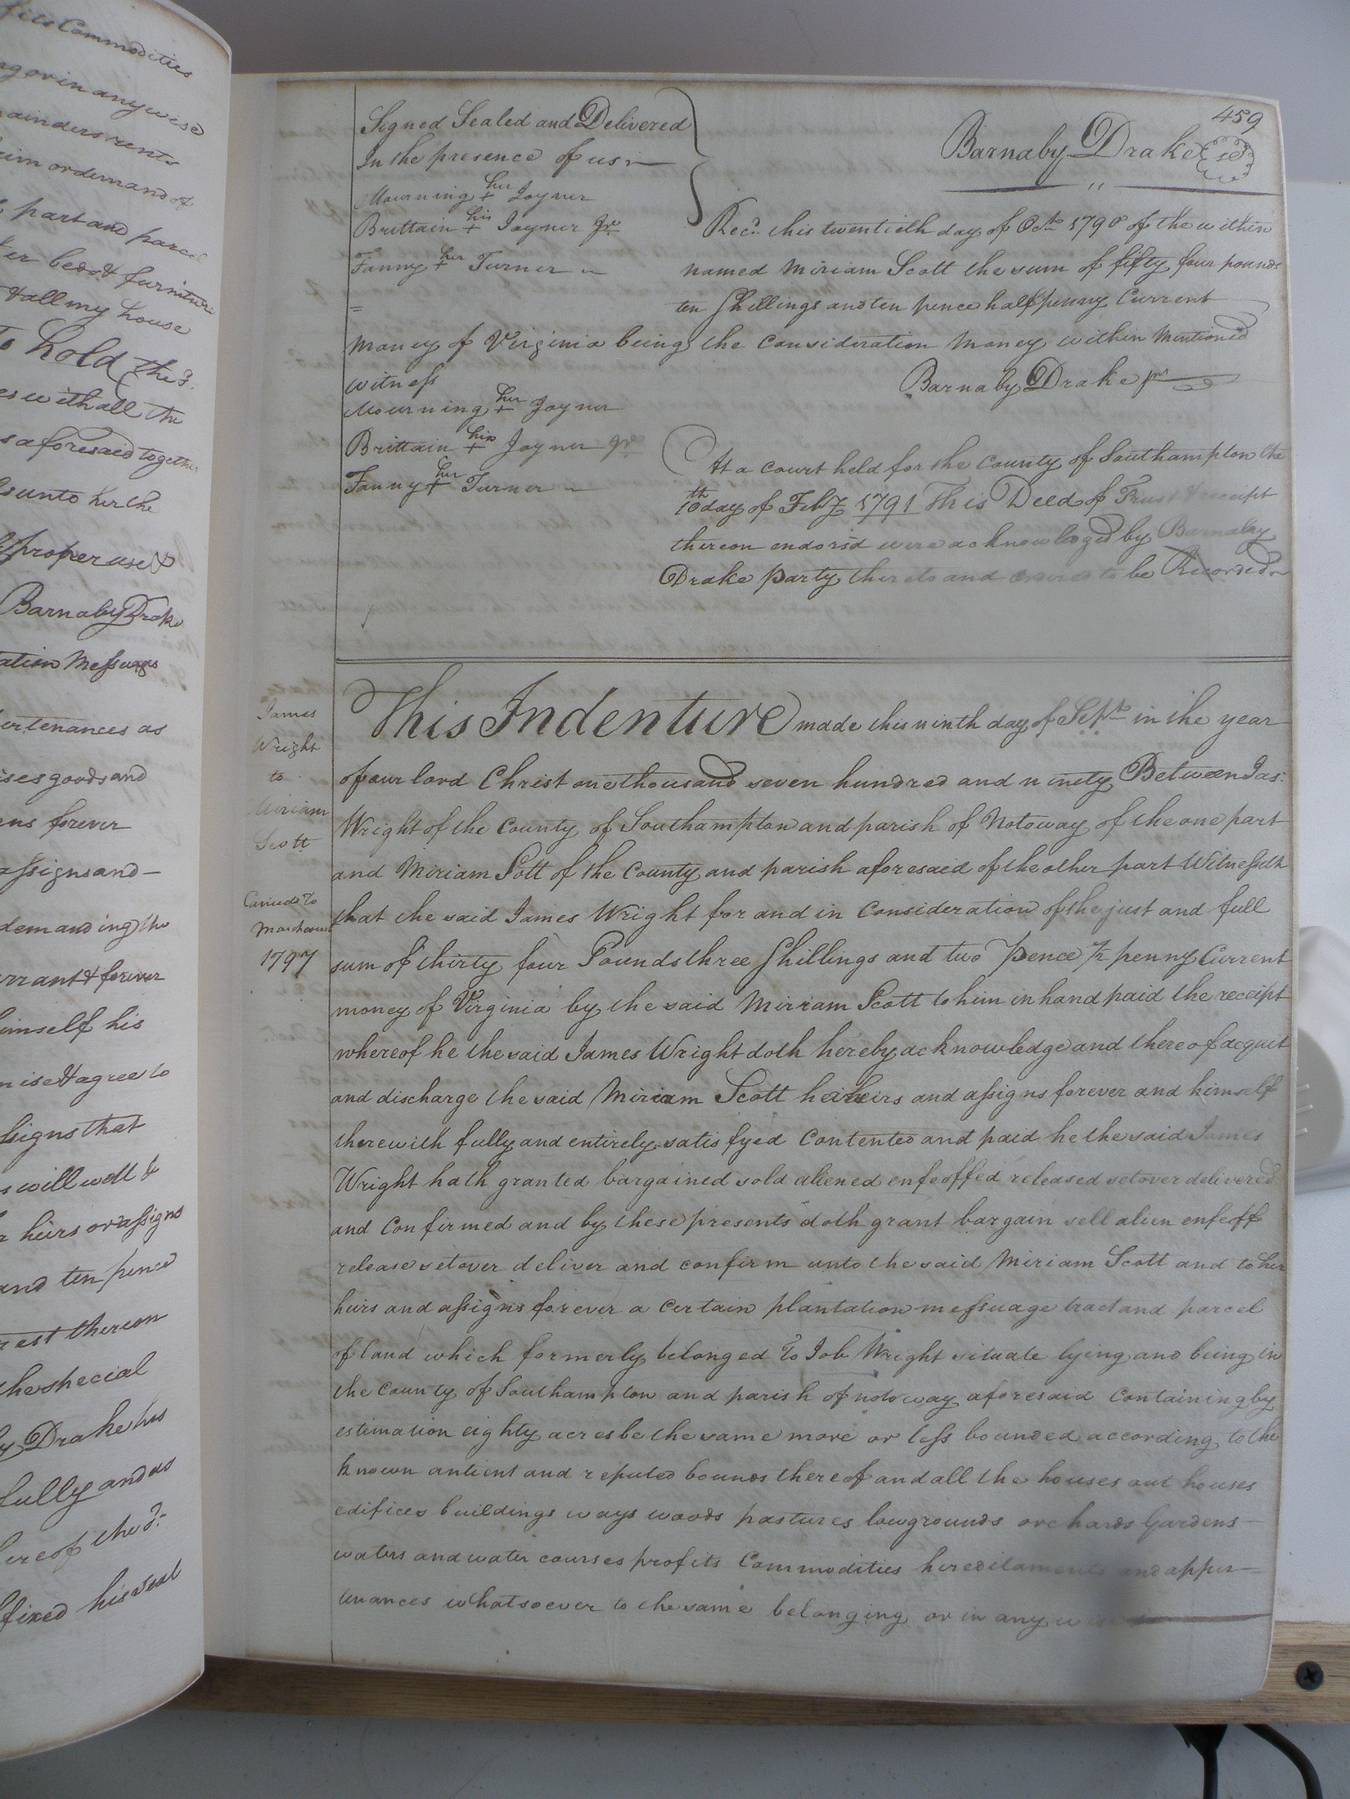 files Commodities
ing or in any wise
mainders rents
claim or demand of
part and parcel
her beds & furniture
& all my house
To hold the s.
es with all the
s aforesaid together
unto her the
proper use &
Barnaby Drake
ation Messuages
urtenances as
ises goods and
ns forever
assigns and —
demanding the
arrant & forever
himself his
mise & agree to
assigns that
s will well &
heirs or assigns
and ten pence
rest thereon
the special
by Drake his
fully and as
hereof the s.
ffixed his seal
459
Signed Sealed and Delivered
In the presence of us
Barnaby Drake
Mourning her + Joyner
Brittain his + Joyner Jr.
Fanny her + Turner
Rec.d this twentieth day of Oct.r 1790 of the within
named Miriam Scott the sum of fifty four pounds
ten Shillings and ten pence halfpenny Current
money of Virginia being the Consideration Money within Mentioned
witness
Barnaby Drake
Mourning her + Joyner
Brittain his + Joyner Jr.
Fanny her + Turner
At a court held for the County of Southampton the
10th day of Feb.y 1791 This Deed of Trust & receipt
thereon endorsd were acknowledged by Barnaby
Drake party thereto and ordered to be Recorded
James
Wright
to
Miriam
Scott
1797
This Indenture made this ninth day of Sept.r in the year
of our lord Christ one thousand seven hundred and ninety Between Jas.
Wright of the County of Southampton and parish of Notoway of the one part
and Miriam Sott of the County and parish aforesaid of the other part Witnesseth
that the said James Wright for and in Consideration of the just and full
sum of thirty four Pounds three Shillings and two pence ½ penny Current
money of Virginia by the said Mirram Scott to him in hand paid the receipt
whereof he the said James Wright doth hereby acknowledge and thereof acquit
and discharge the said Miriam Scott her heirs and assigns forever and himself
therewith fully and entirely satisfyed Contented and paid he the said James
Wright hath granted bargained sold aliened enfeoffed released setover delivered
and Confirmed and by these presents doth grant bargain sell alien enfeoff
release setover deliver and confirm unto the said Miriam Scott and to her
heirs and assigns forever a Certain plantation messuage tract and parcel
of land which formerly belonged To Job Wright situate lying and being in
the County of Southampton and parish of notoway aforesaid Containing by
estimation eighty acres be the same more or less bounded according to the
known antient and reputed bounds thereof and all the houses out houses
edifices buildings ways woods pastures lowgrounds orchards Gardens
waters and water courses profits Commodities hereditaments and appur-
tenances whatsoever to the same belonging or in any wise